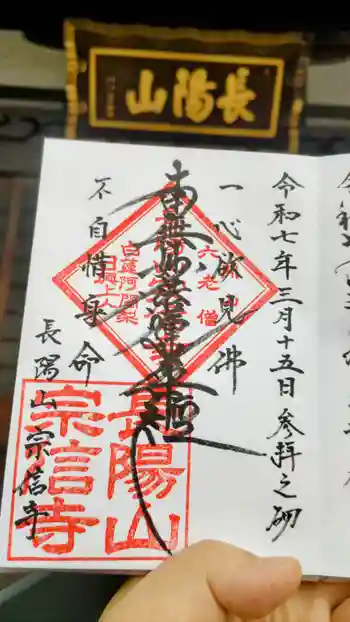 長陽山
令和七年三月十五日参拝之砌
一心欲見佛
南無妙法蓮華経
不自惜身命
長陽山 宗信寺
六老僧
白蓮阿闍梨
日興上人
長陽山
宗信寺